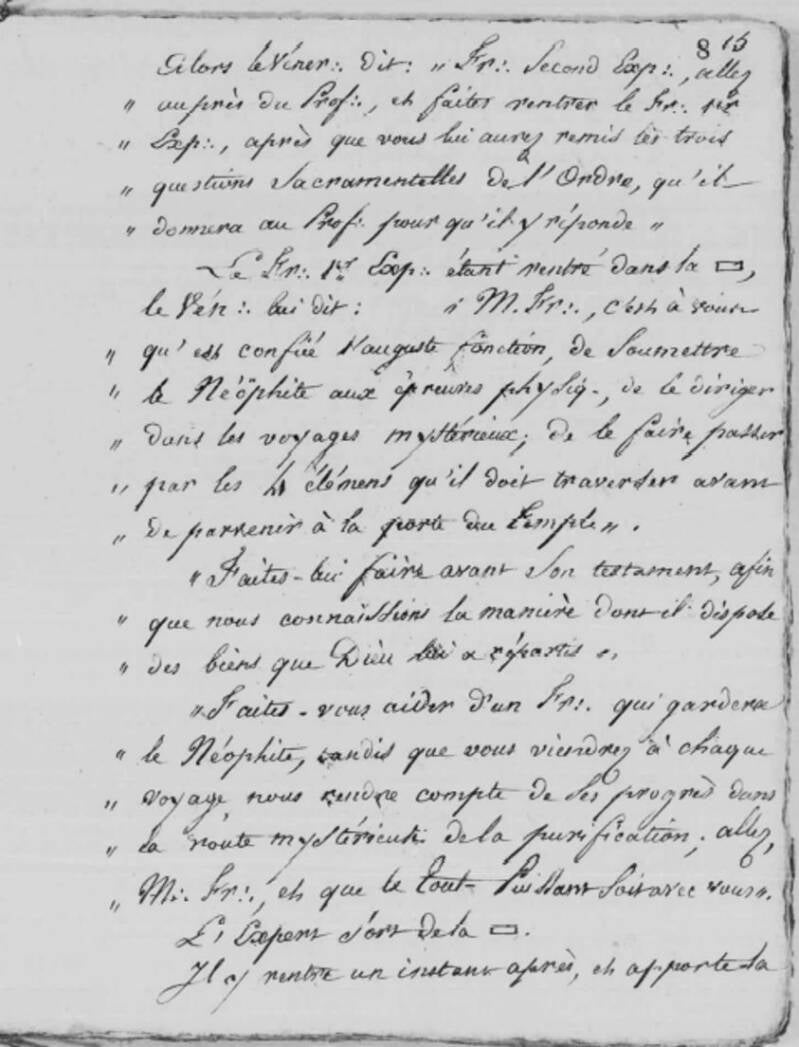 8 15
Alors le Véner∴ dit : " Fr∴ Second Exp∴, allez
" auprès du Prof∴, et faites rentrer le Fr∴ 1er
" Exp∴, après que vous lui aurez remis les trois
" questions Sacramentelles de l'Ordre, qu'il
" donnera au Prof∴ pour qu'il y réponde "
Le Fr∴ 1er Exp∴ étant rentré dans la ▭,
le Vén∴ lui dit : " M. Fr∴, c'est à vous
" qu'est confiée l'auguste fonction, de soumettre
" le Néophite aux épreuves physiq., de le diriger
" dans les voyages mystérieux; de le faire passer
" par les 4 élémens qu'il doit traverser avant
" de parvenir à la porte du temple ".
" Faites-lui faire avant son testament, afin
" que nous connaissions la manière dont il dispose
" des biens que Dieu lui a répartis ".
" Faites-vous aider d'un Fr∴ qui gardera
" le Néophite, tandis que vous viendrez à chaque
" voyage nous rendre compte de ses progrès dans
" la route mystérieuse de la purification; allez,
" M∴ Fr∴, et que le Tout-Puissant soit avec vous ".
L'Expert sort de la ▭.
Il y rentre un instant après, et apporte la